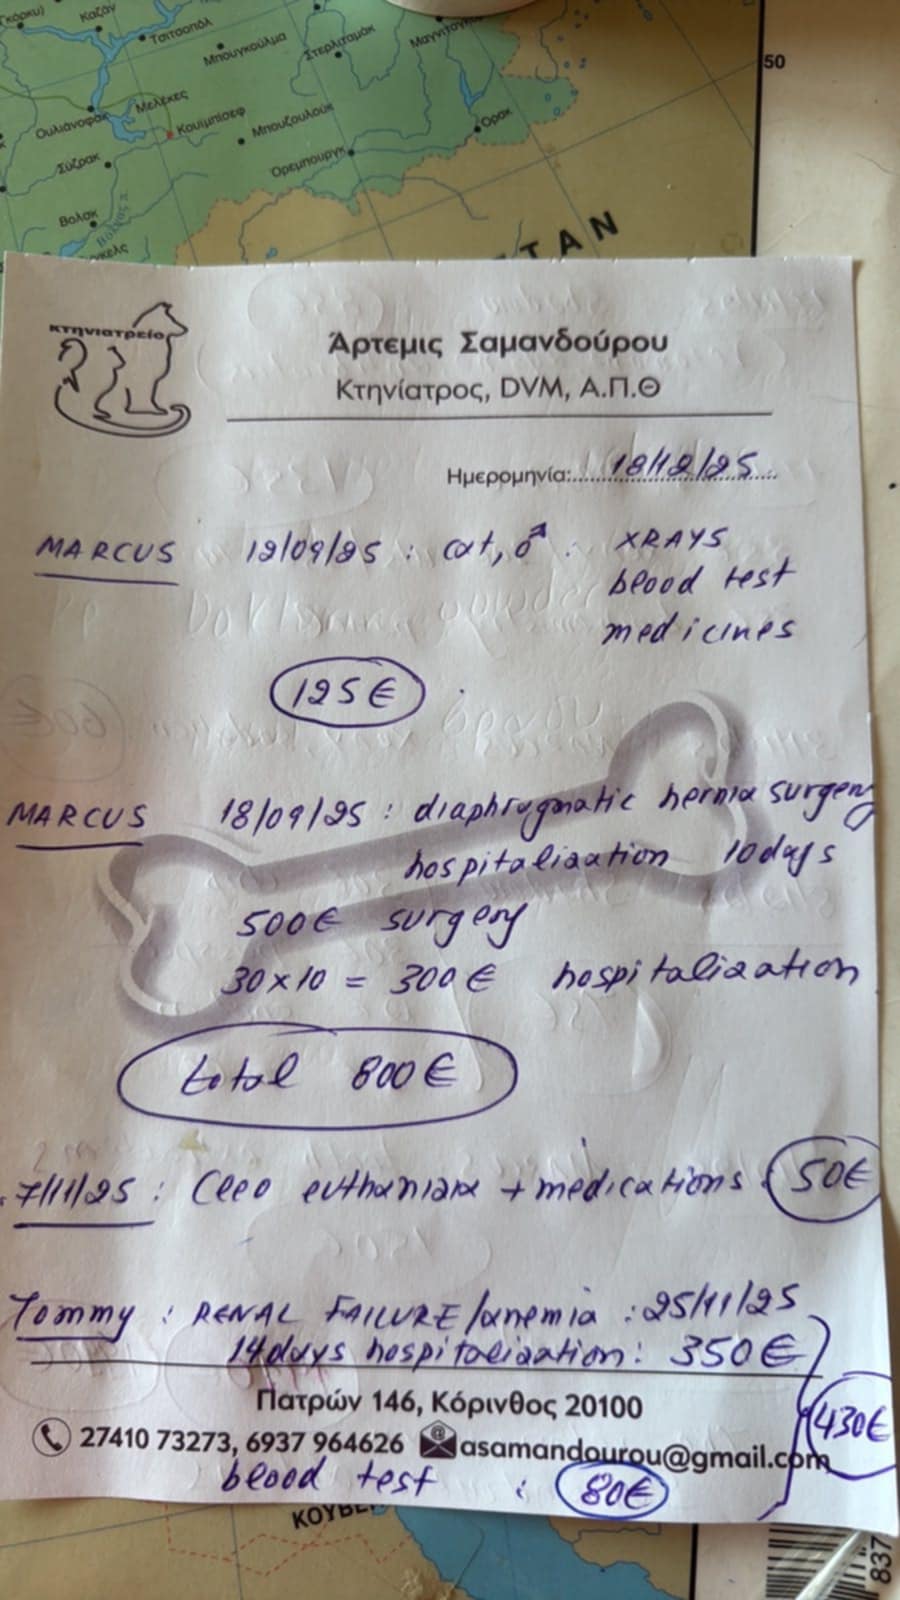 Καζάν
Τσιτσοπόλ
Μπουγκούλμα
Στερλιταμάκ
50
Μελεκες
Ουλιάνοφσκ
Κουϊμπίσεφ
Μπουζουλούκ
Ορσκ
Σύζραν
Ορεμπουργκ
Βολσκ
ΤΑΝ
κτηνιατρείο
Άρτεμις Σαμανδούρου
Κτηνίατρος, DVM, Α.Π.Θ
Ημερομηνία: 18/12/25
MARCUS 12/09/25 : cat, ♂ : XRAYS
blood test
medicines
125€
MARCUS 18/09/25 : diaphragmatic hernia surgery
hospitalization 10days
500€ surgery
30x10 = 300€ hospitalization
total 800€
7/11/25 : Cleo euthaniasia + medications 50€
Tommy : RENAL FAILURE/anemia : 25/11/25
14days hospitalization: 350€
Πατρών 146, Κόρινθος 20100
430€
27410 73273, 6937 964626 asamandourou@gmail.com
blood test : 80€
837